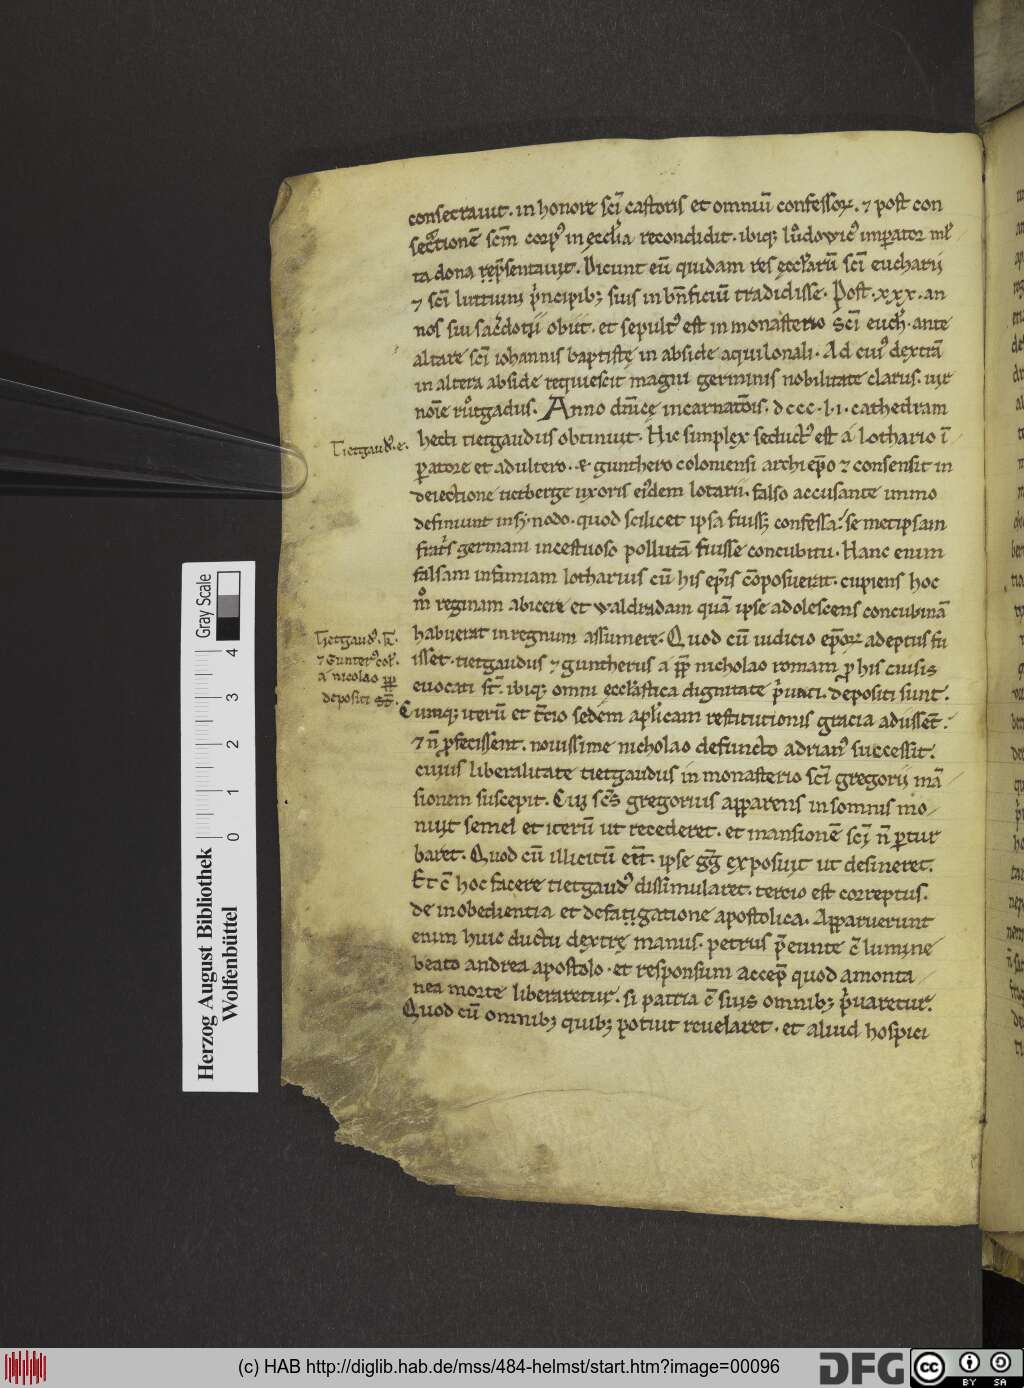 consecrauit. in honore sci castoris et omniū confessoꝝ. ⁊ post con
secͣtionē scm̄ corp᷒ in ęccłia recondidit. ibiq; luͦdowic᷒ imperator ml̕
ta dona rep̄sentauit. Dicunt eū quidam res ęccłarū sci eucharii
⁊ sci luttium pͥncipib; suis in bn̄ficiū tradidisse. Post .xxx. an
nos sui sac̓dotii obiit. et sepult᷒ est in monasterio Sci euch̕. ante
altare sci iohannis baptistę in abside aquilonali. Ad cui᷒ dextrā
in altera abside requiescit magni germinis nobilitate clarus. uir
noīe ruͦtgadus. Anno dn̄icę incarnatōis. dccc.l.i. cathedram
Tietgaud᷒. e.
hecti tietgaudus obtinuit. Hic simplex seduct᷒ est á lothario ī
ꝑatore et adultero. & gunthero coloniensi archiep̄o ⁊ consensit in
deiectione tietberge uxoris ei᷒dem lotarii. falso accusante immo
definiunt in synodo. quod scilicet ipsa fuiss; confessa. se metipsam
frat̓s germani incestuoso pollutā fuisse concubitu. Hanc enim
falsam infamiam lotharius cū his ep̄is cōposuerat. cupiens hoc
mͦ reginam abicere et waldradam quā ipse adolescens concubinā
Tietgaud᷒. T̄r.
⁊ Gunter᷒ col̕.
a nicolao p̄p̄
depositi s̄s̄.
habuerat in regnum assumere. Quod cū iudicio ep̄oꝝ adeptus fu
isset. tietgaudus ⁊ guntherus a p̄p̄ nicholao romam ꝓ his causis
euocati s̄t. ibiq; omni eccłastica dignitate pͥuati. depositi sunt.
Cumq; iterū et t̄cio sedem aplicam restitutionis gracia adissent̄.
⁊ n̄ ꝓfecissent. nouissime nicholao defuncto adrian᷒ successit.
cuius liberalitate tietgaudus in monasterio sci gregorii mā
sionem suscepit. Cui sc̄s gregorius apparens in somnis mo
nuit semel et iterū ut recederet. et mansionē sci n̄ ꝑtur
baret. Quod cū illicitū eet̄. ipse ḡḡ exposuit ut desineret.
Et c̄ hoc facere tietgaud᷒ dissimularet. tercio est correptus.
de inobedientia et defatigatione apostolica. Apparuerunt
enim huic ductu dextrę manus. petrus p̄eunte c̄ lumine
beato andrea apostolo. et responsum accep̄ quod amonta
nea morte liberaretur. si patria c̄ suis omnib; pͥuaretur.
Quod cū omnib; quib; potuit reuelaret. et aliud hospici
Gray Scale
0 1 2 3 4
Herzog August Bibliothek
Wolfenbüttel
(c) HAB http://diglib.hab.de/mss/484-helmst/start.htm?image=00096
DFG
cc BY SA